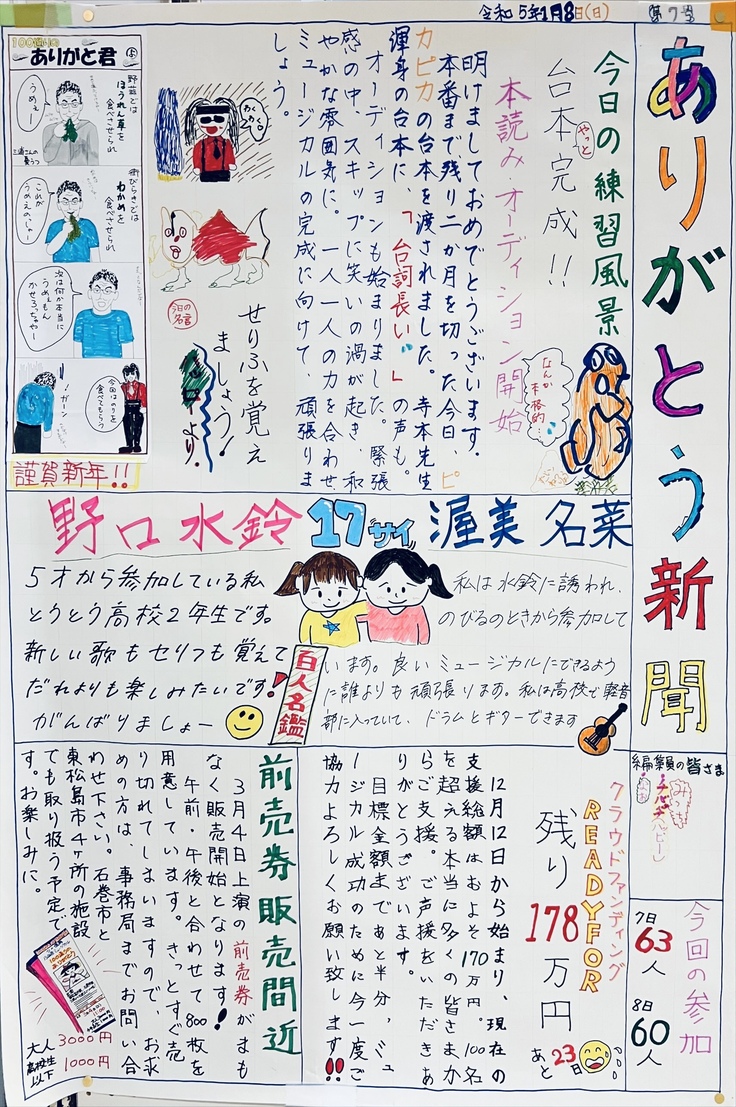 令和5年1月8日(日)
第7号
ありがとう新聞
今日の練習風景
台本完成!!
やっと
本読み・オーディション開始
なんか本格的…
明けましておめでとうございます。
本番まで残り二か月を切った今日、ピ
カピカの台本を渡されました。寺本先生
渾身の台本に、「台詞長い…」の声も。
オーディションも始まりました。緊張
感の中、スキップに笑いの渦が起き、和
やかな雰囲気に。一人一人の力を合わせ
ミュージカルの完成に向けて、頑張りま
しょう。
わくわく。
今日の名言
せりふを覚え
ましょう!
より。
ありがと君
野蒜では
ほうれん草を
食べさせられ
うめぇー
街びらきでは
わかめを
食べさせられ
これが
うめえのぃゃー
次は何か本当に
うめぇもん
かせろっちゃやー
今回はのりを
食べてもらう
!ガーン
謹賀新年!!
野口水鈴
17サイ
渥美名菜
5才から参加している私
とうとう高校2年生です。
新しい歌もセリフも覚えて
だれよりも楽しみたいです!
がんばりましょー
百人名鑑
私は水鈴に誘われ、
のびるのときから参加して
います。良いミュージカルにできるよう
に誰よりも頑張ります。私は高校で軽音
部に入っていて、ドラムとギターできます
編集員の皆さま
今回の参加
7日
63人
8日
60人
クラウドファンディング
READYFOR
残り178万円
あと23日
12月12日から始まり、現在の
支援総額はおよそ170万円。100名
を超える本当に多くの皆さまか
らご支援。ご声援をいただきあ
りがとうございます。
目標金額まであと半分、ミュ
ージカル成功のために今一度ご
協力よろしくお願い致します!!
前売券販売間近
3月4日上演の前売券がまも
なく販売開始となります!
午前・午後と合わせて800枚を
用意しています。きっとすぐ売
り切れてしまいますので、お求
めの方は、事務局までお問い合
わせ下さい。石巻市と
東松島市4ヶ所の施設
でも取り扱う予定で
す。お楽しみに。
大人 3000円
高校生以下 1000円